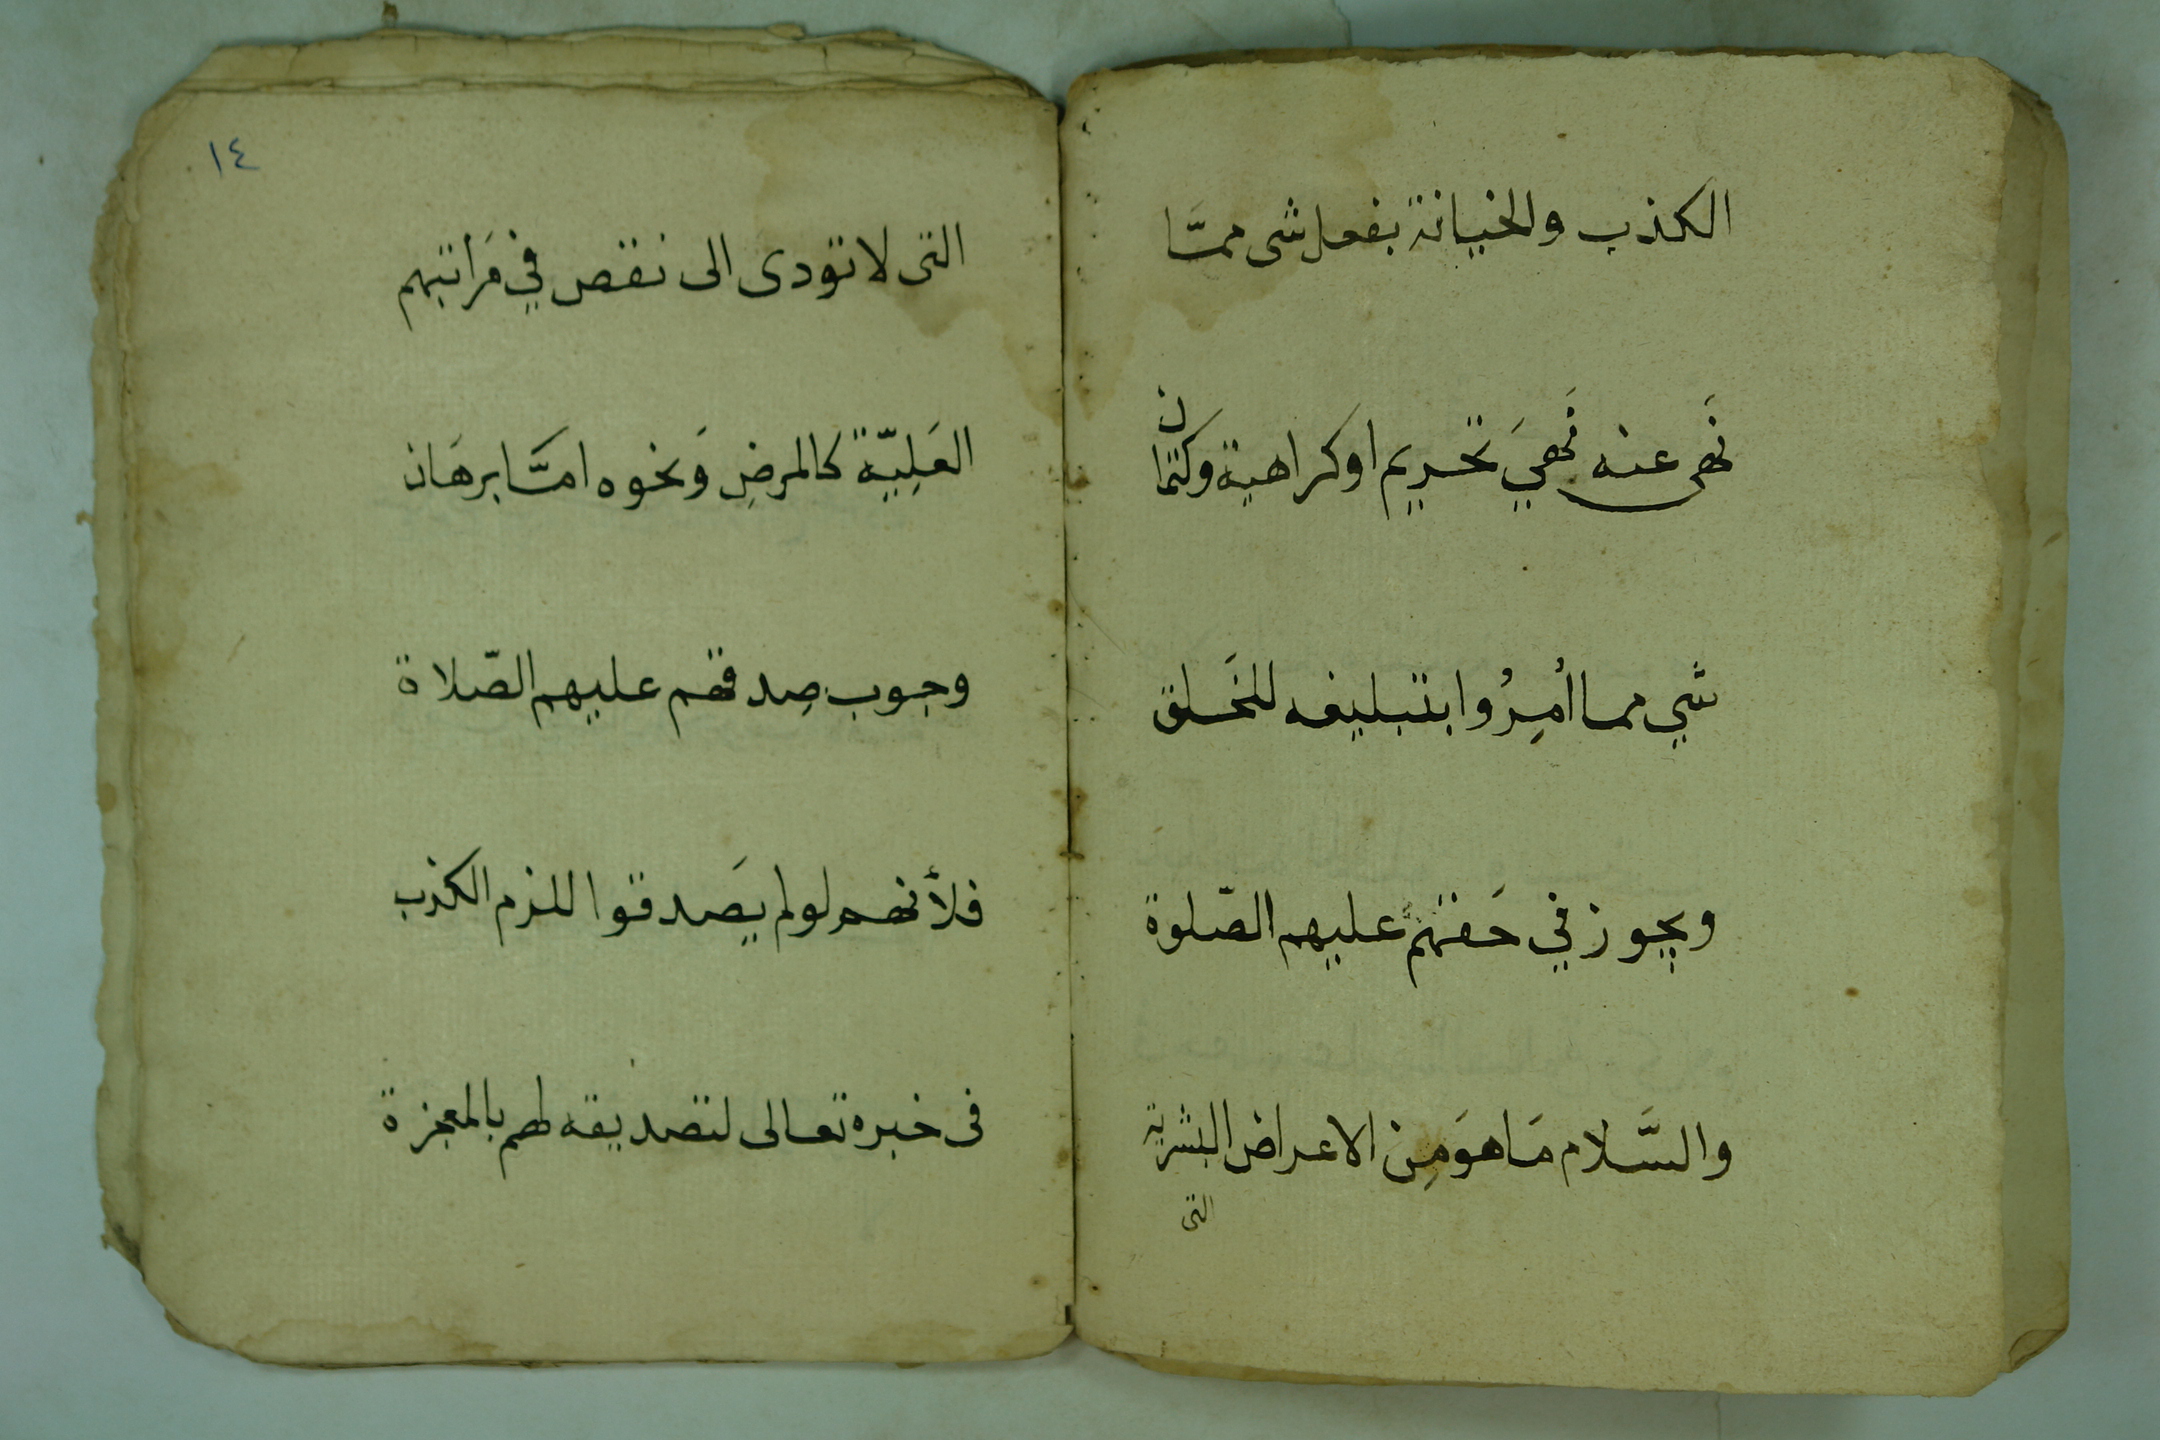 الكذب والخيانة بفعل شى ممّا
نَهى عنه نَهيَ تحريم او كراهية وكتمان
شي مما أمِرُوا بتبليغه للخَلق
ويجوز في حَقهم عليهم الصّلوة
والسَّلام مَا هوَ مِن الاعراض البشرية
التى
١٤
التى لا تؤدى الى نقص في مَراتبهم
العَلِيّة كالمرضِ وَنحوه امَّا برهَان
وجوب صِدقهم عليهم الصّلاة
فلأنهم لو لم يَصدقوا للزم الكذب
فى خبره تعالى لتصديقه لهم بالمعجزة